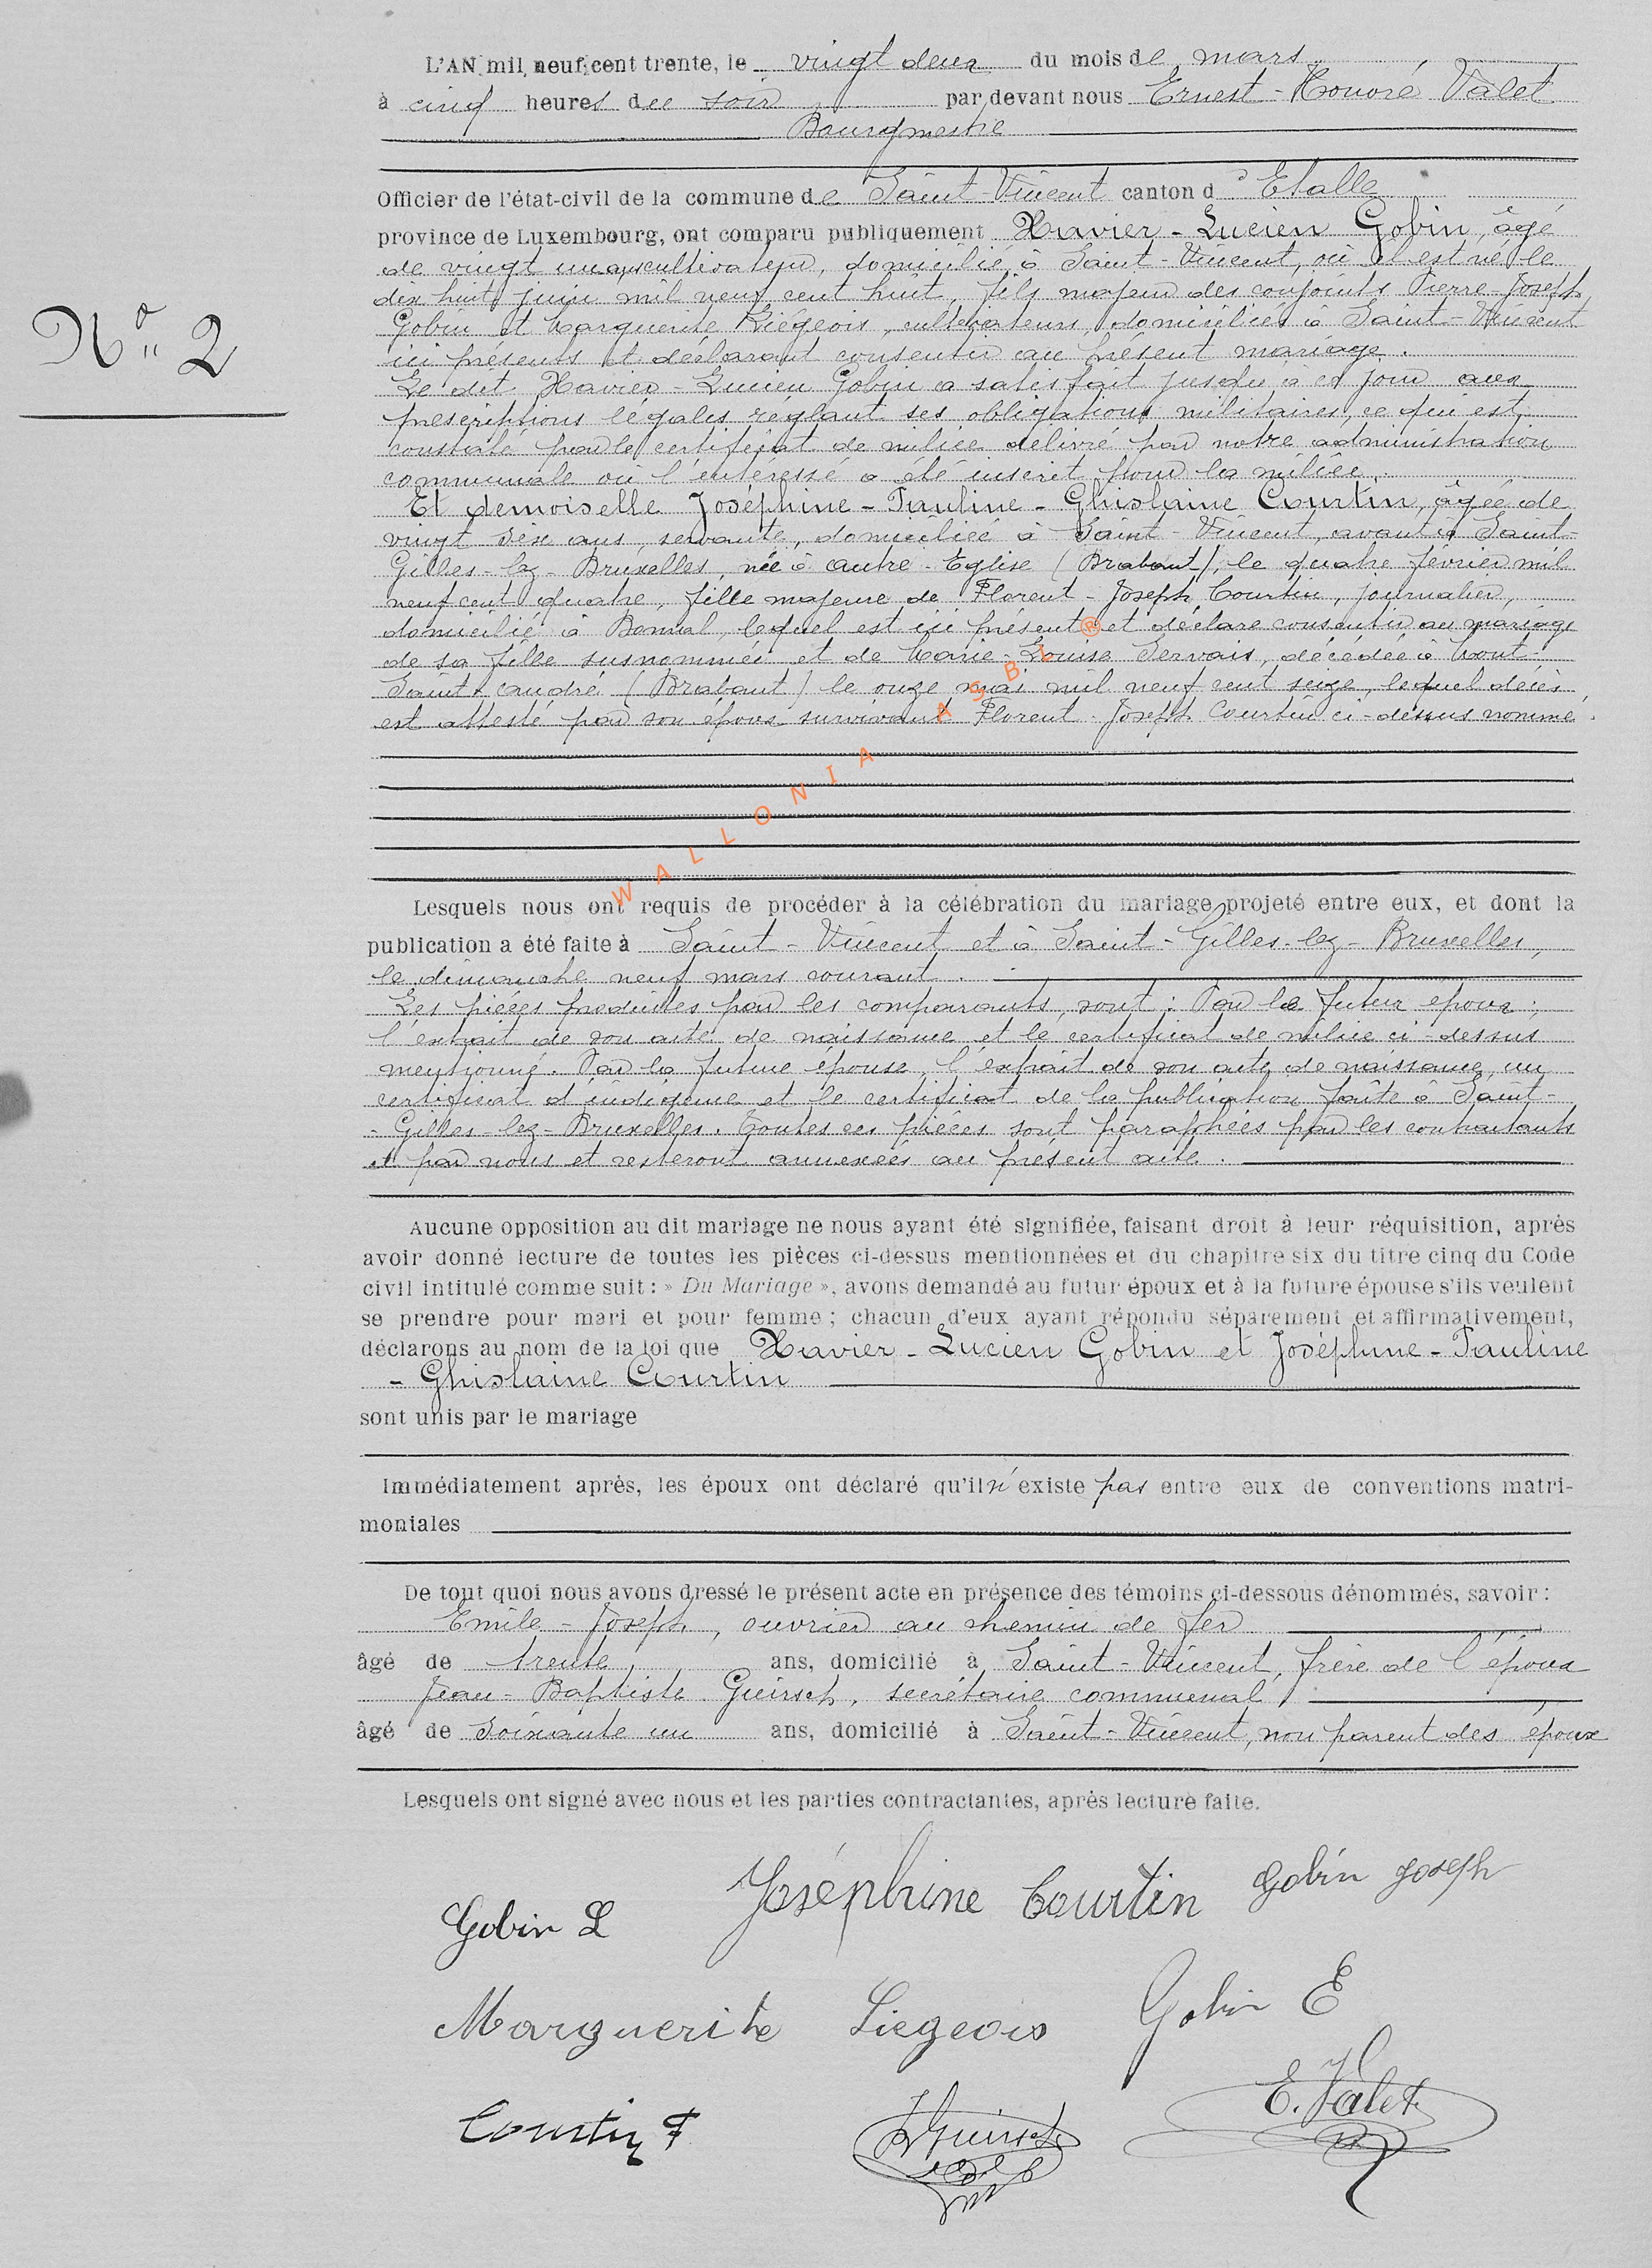 L'AN mil neuf cent trente, le vingt deux du mois de mars
à cinq heures du soir par devant nous Ernest-Honoré Valet
Bourgmestre
Officier de l'état-civil de la commune de Saint-Vincent canton d'Etalle
province de Luxembourg, ont comparu publiquement Xavier-Lucien Gobin, âgé
de vingt un ans cultivateur, domicilié à Saint-Vincent, où il est né le
dix huit juin mil neuf cent huit, fils majeur des conjoints Pierre-Joseph
Gobin et Marguerite Liégeois, cultivateurs, domiciliés à Saint-Vincent
ici présents et déclarant consentir au présent mariage.
N° 2
Le dit Xavier-Lucien Gobin a satisfait jusqu'à ce jour aux
prescriptions légales réglant ses obligations militaires, ce qui est
constaté par le certificat de milice délivré par notre administration
communale où l'intéressé a été inscrit pour la milice.
Et demoiselle Joséphine-Pauline-Ghislaine Courtin, âgée de
vingt six ans, servante, domiciliée à Saint-Vincent, avant à Saint-
Gilles-lez-Bruxelles, née à Autre-Eglise (Brabant), le quatre février mil
neuf cent quatre, fille majeure de Florent-Joseph Courtin, journalier,
domicilié à lequel est ici présent et déclare consentir au mariage
de sa fille susnommée et de Marie-Louise Servais, décédée à Mont-
Saint-André (Brabant) le onze mai mil neuf cent seize, lequel décès
est attesté par son époux survivant Florent-Joseph Courtin ci-dessus nommé.
WALLONIA ASBL ®
Lesquels nous ont requis de procéder à la célébration du mariage projeté entre eux, et dont la
publication a été faite à Saint-Vincent et à Saint-Gilles-lez-Bruxelles,
le dimanche neuf mars courant.
Les pièces produites par les comparants, sont: Par le futur époux:
l'extrait de son acte de naissance et le certificat de milice ci-dessus
mentionné. Par la future épouse, l'extrait de son acte de naissance, un
certificat d'indigence et le certificat de la publication faite à Saint-
-Gilles-lez-Bruxelles. Toutes ces pièces sont paraphées par les contractants
et par nous et resteront annexées au présent acte.
Aucune opposition au dit mariage ne nous ayant été signifiée, faisant droit à leur réquisition, après
avoir donné lecture de toutes les pièces ci-dessus mentionnées et du chapitre six du titre cinq du Code
civil intitulé comme suit: » Du Mariage », avons demandé au futur époux et à la future épouse s'ils veulent
se prendre pour mari et pour femme; chacun d'eux ayant répondu séparément et affirmativement,
déclarons au nom de la loi que Xavier-Lucien Gobin et Joséphine-Pauline
-Ghislaine Courtin
sont unis par le mariage
Immédiatement après, les époux ont déclaré qu'il n'existe pas entre eux de conventions matri-
moniales
De tout quoi nous avons dressé le présent acte en présence des témoins ci-dessous dénommés, savoir:
Emile-Joseph, ouvrier au chemin de fer
âgé de trente ans, domicilié à Saint-Vincent, frère de l'époux
Jean-Baptiste Guirsch, secrétaire communal
âgé de soixante un ans, domicilié à Saint-Vincent, non parent des époux
Lesquels ont signé avec nous et les parties contractantes, après lecture faite.
Joséphine Courtin Gobin Joseph
Gobin L
Marguerite Liegeois Gobin E
E. Valet
Courtin F